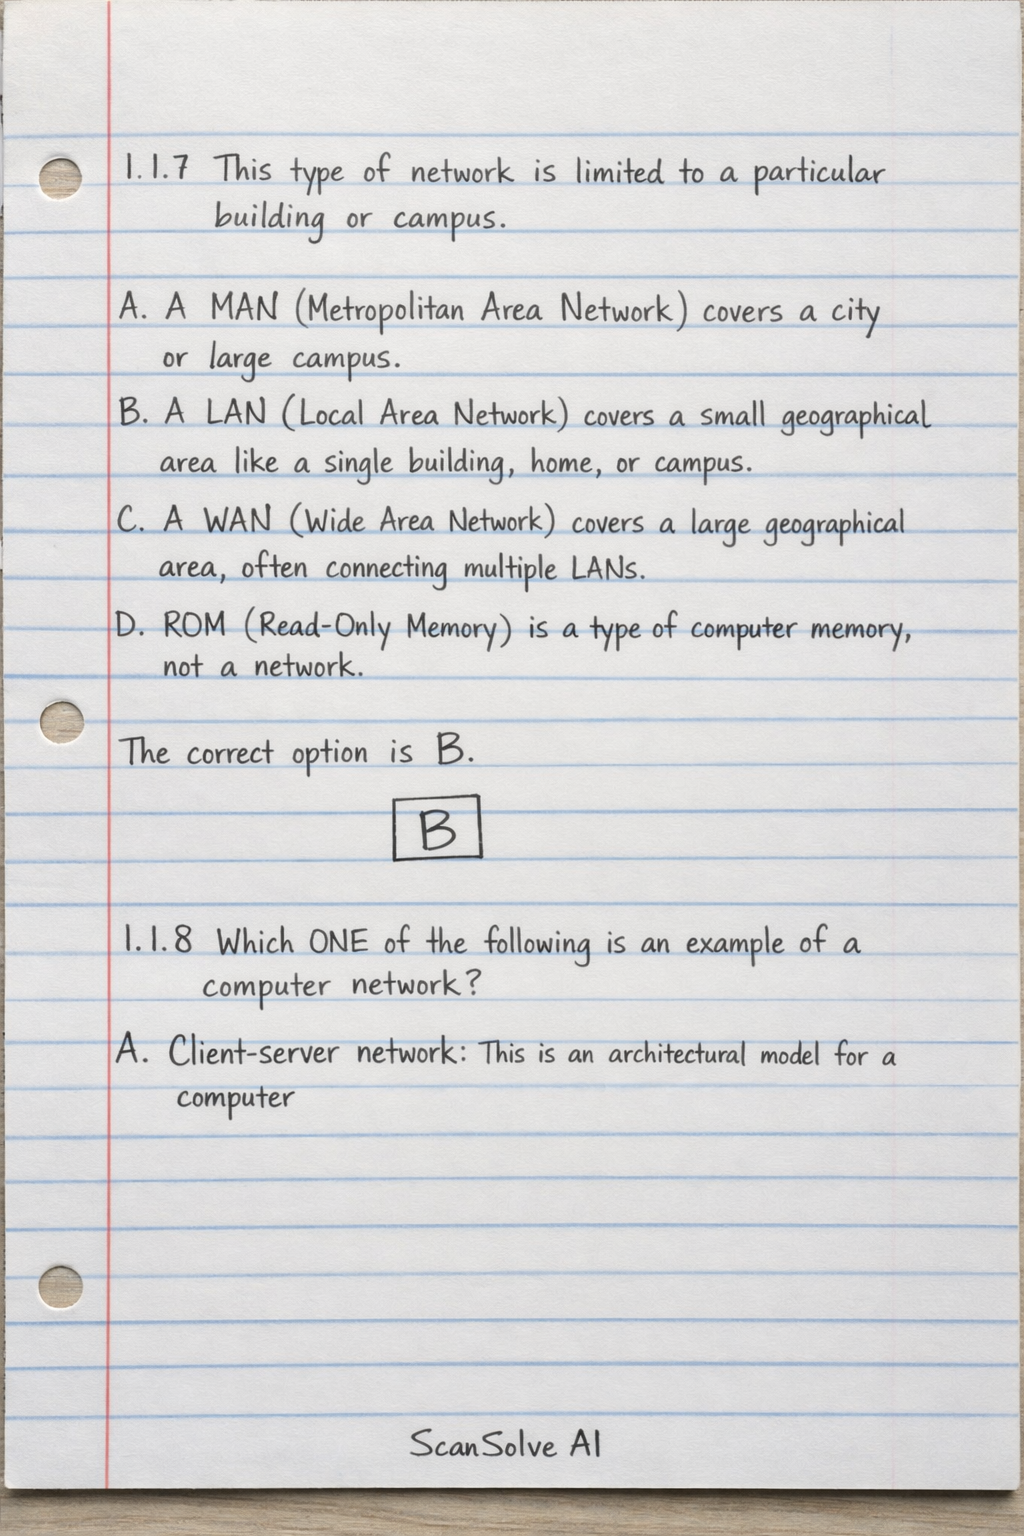 1.1.7 This type of network is limited to a particular
building or campus.
A. A MAN (Metropolitan Area Network) covers a city
or large campus.
B. A LAN (Local Area Network) covers a small geographical
area like a single building, home, or campus.
C. A WAN (Wide Area Network) covers a large geographical
area, often connecting multiple LANs.
D. ROM (Read-Only Memory) is a type of computer memory,
not a network.
The correct option is B.
B
1.1.8 Which ONE of the following is an example of a
computer network?
A. Client-server network: This is an architectural model for a
computer
ScanSolve AI